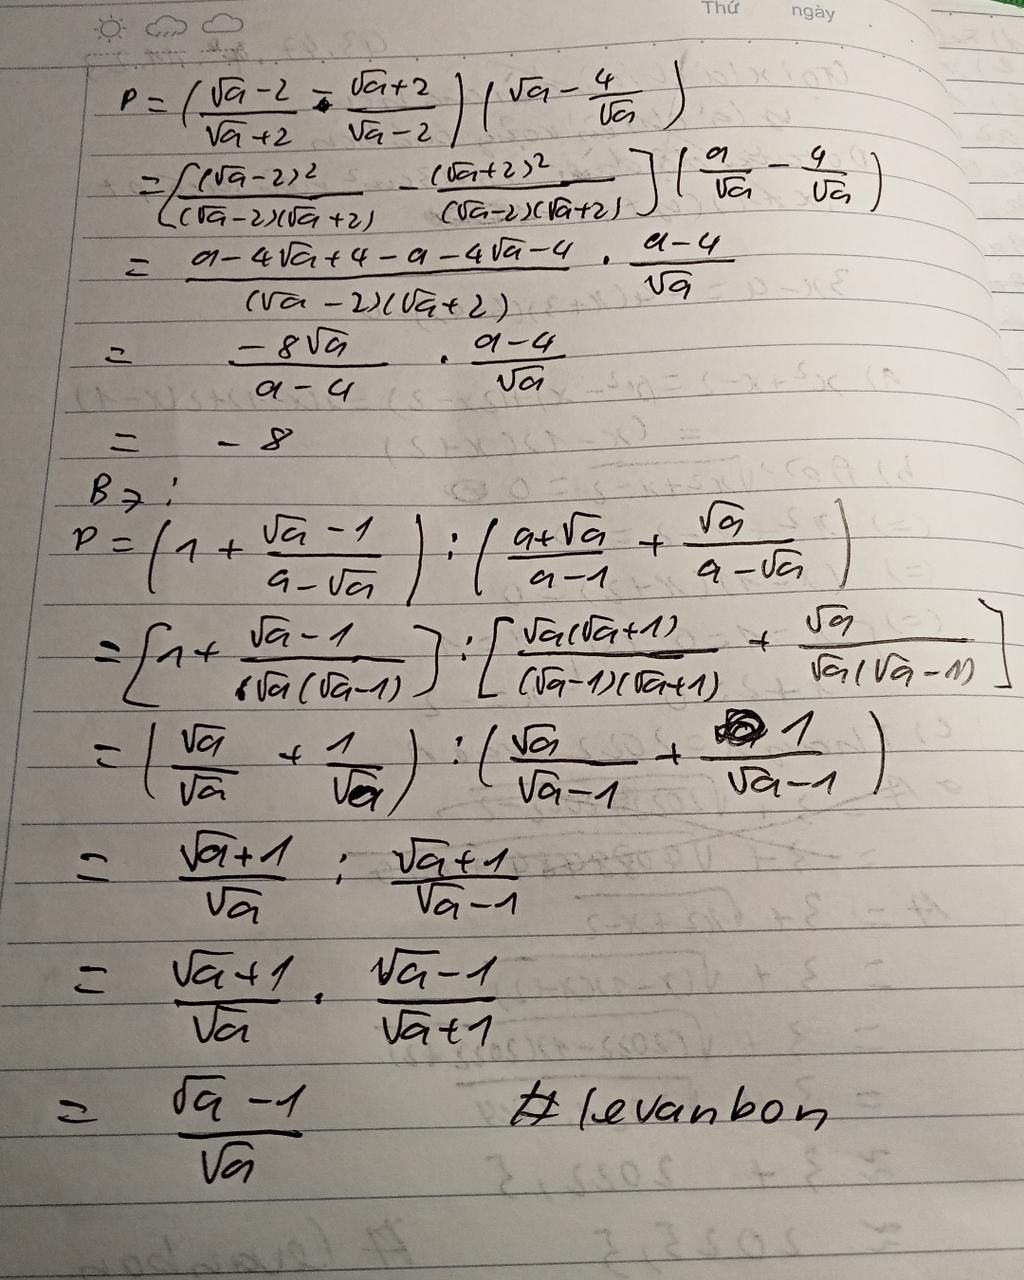 Thứ ngày
P = (√a-2/√a+2 - √a+2/√a-2) (√a - 4/√a)
= [(√a-2)²/(√a-2)(√a+2) - (√a+2)²/(√a-2)(√a+2)] (a/√a - 4/√a)
= a-4√a+4-a-4√a-4/(√a-2)(√a+2) . a-4/√a
= -8√a/a-4 . a-4/√a
= -8
B3 :
P = (1 + √a-1/a-√a) : (a+√a/a-1 + √a/a-√a)
= [1 + √a-1/√a(√a-1)] : [√a(√a+1)/(√a-1)(√a+1) + √a/√a(√a-1)]
= (√a/√a + 1/√a) : (√a/√a-1 + 1/√a-1)
= √a+1/√a : √a+1/√a-1
= √a+1/√a . √a-1/√a+1
= √a-1/√a # levanbon